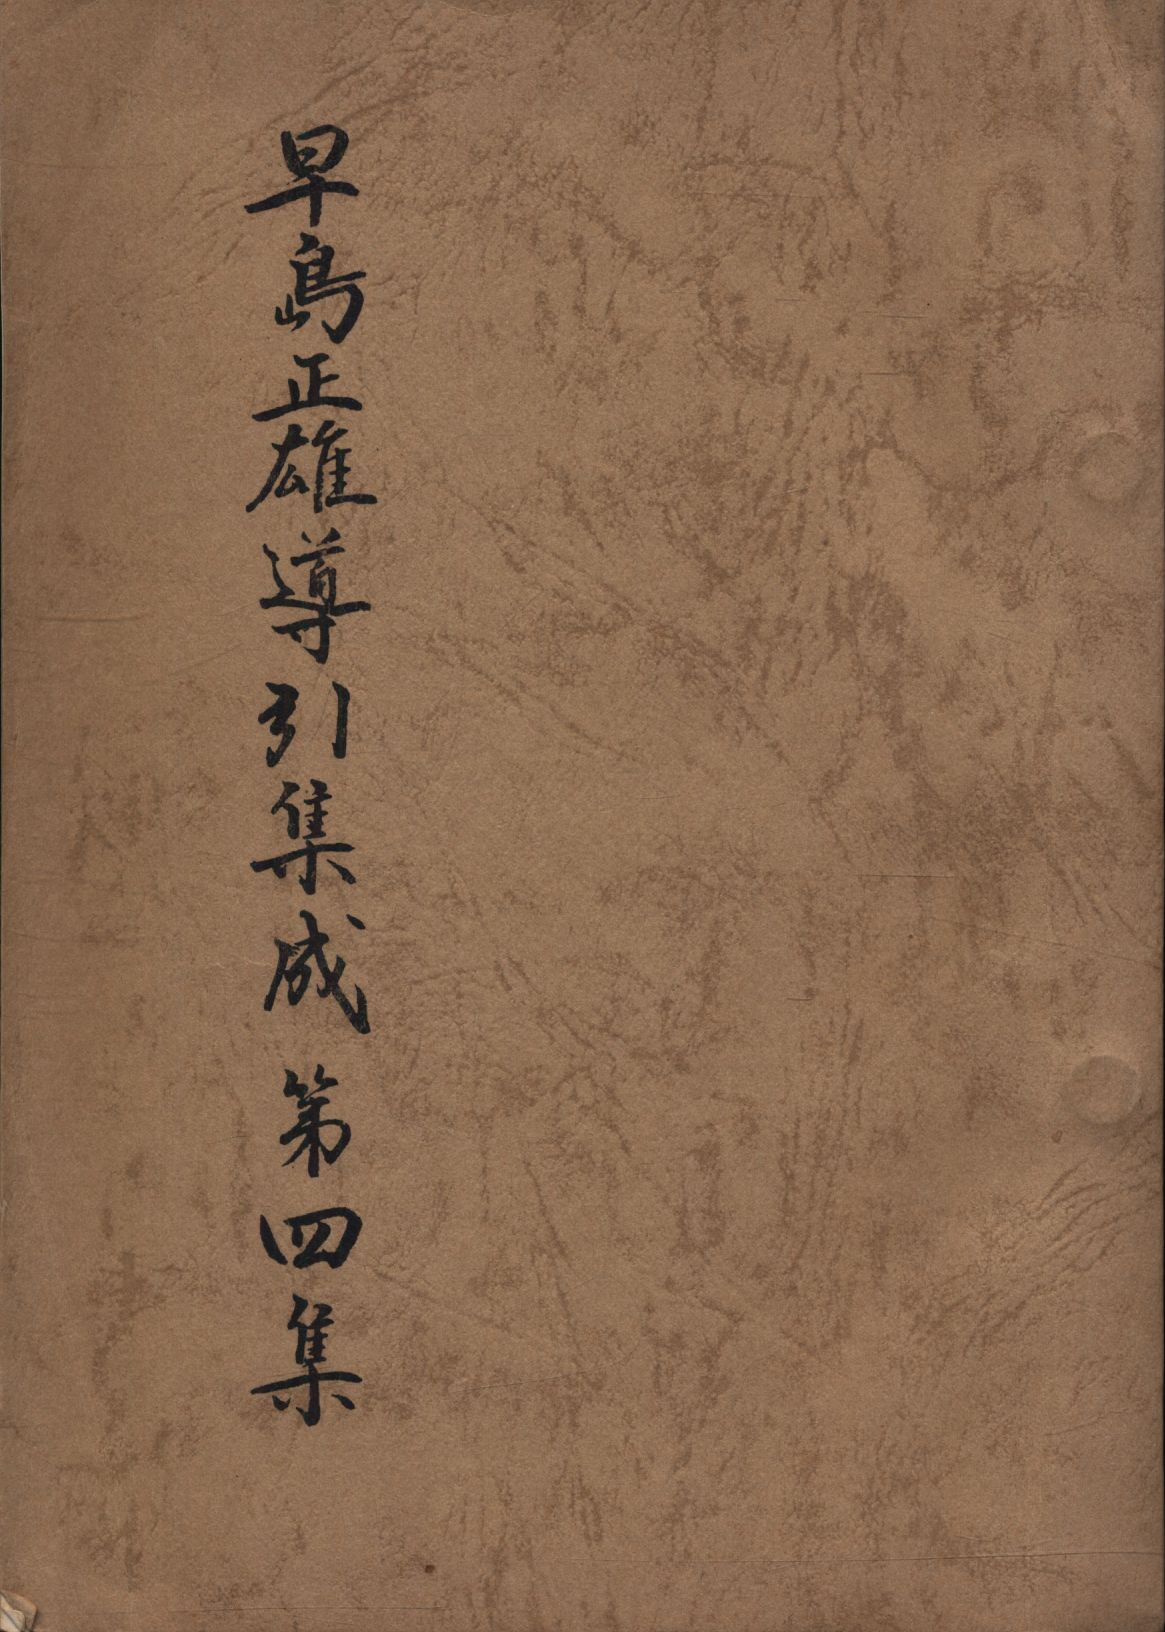 早島正雄導引集成 第四集